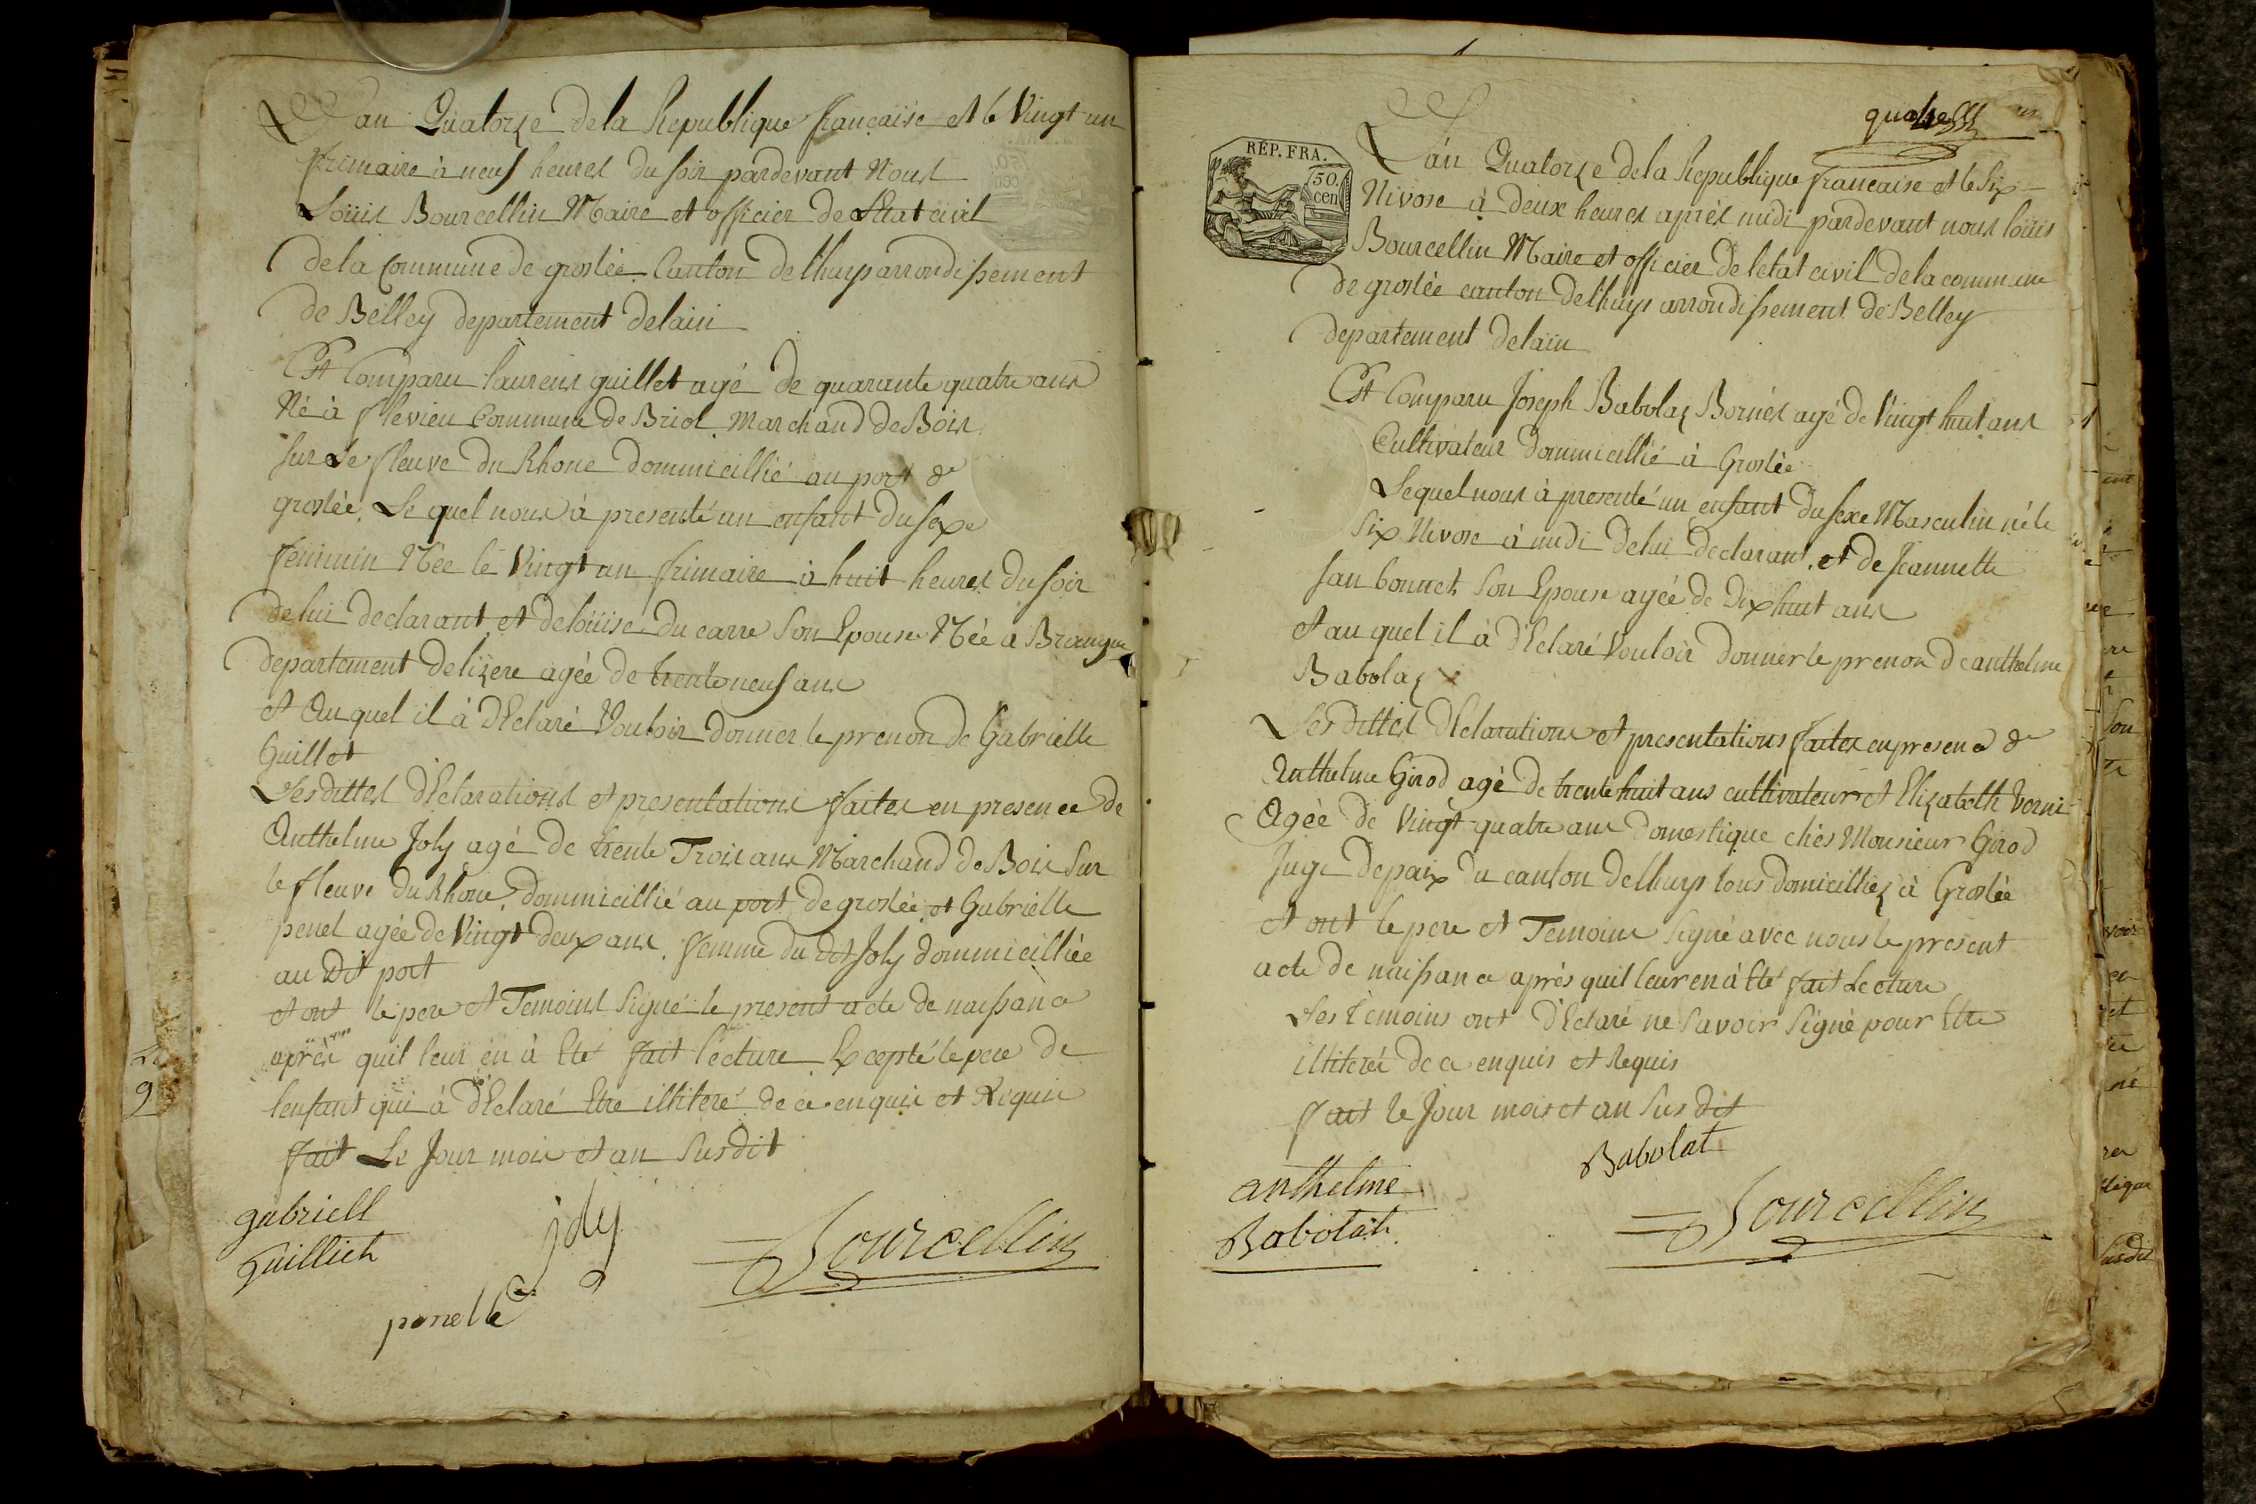 L'an Quatorze de la Republique française et le Vingt un
frimaire à neuf heures du soir pardevant Nous
Loüis Bourcellin Maire et officier de Létat civil
de la Commune de groslée Canton de lhuys arrondissement
de Belley departement delain
Est Comparu laurens guillet agé de quarante quatre ans
Né à flevieu Commune de Briol Marchand de Bois
sur Le fleuve du Rhone dommicillié au port de
groslée. Le quel nous à presenté un enfant du sexe
feminin Née le Vingt un frimaire à huit heures du soir
de lui declarant et de loüise du carre son Epouse Née a Brangue
departement delizere agée de trente neuf ans
et Au quel il à dEclaré Vouloir donner le prenon de Gabrielle
Guillet
Lesdittes dEclarations et presentations faites en presence de
Anthelme Joly agé de trente Trois ans Marchand de Bois Sur
le fleuve du Rhone dommicillié au port de groslée et Gabrielle
penel agée de Vingt deux ans. femme du dit Joly dommicilliée
au Dit port
et ont le pere et Temoins signé le present acte de naissance
après quil leur en à Eté fait lecture Excepté le pere de
lenfant qui à dEclaré Etre illiteré de ce enquis et Requis
fait Le Jour mois et an Susdit
gabriell
Guillieth
joly
ponelle
Bourcellin
9
quatre
REP. FRA.
50.
cen
L'an Quatorze de la Republique francaise et le Six
Nivose à deux heures après midi pardevant nous loüis
Bourcellin Maire et officier de letat civil de la commune
de groslée canton de lhuys arrondissement de Belley
departement delain
Est Comparu Joseph Babolaz Bornés agé de Vingt huit ans
Cultivateur dommicillié à Groslée
Lequel nous à presenté un enfant du sexe Masculin né le
Six Nivose à midi de lui declarant. et de Jeannette
Janbonnet son Epouse agée de dix huit ans
et au quel il à dEclaré Vouloir donner le prenon deanthelme
Babolaz
Lesdittes dEclarations et presentations faites en presence de
Anthelme Girod agé de trente huit ans cultivateur et Elizabeth Verni
Agée de Vingt quatre ans domestique chés Monsieur Girod
Juge de paix du canton de lhuys tous domicilliez à Groslée
et ont le pere et Temoins signé avec nous le present
acte de naissance après quil leur en à Eté fait Lecture
Les Temoins ont dEclaré ne Savoir Signé pour Etre
illiterés de ce enquis et Requis
fait le Jour mois et an Sus dit
Babolat
anthelme
Babolat
Bourcellin